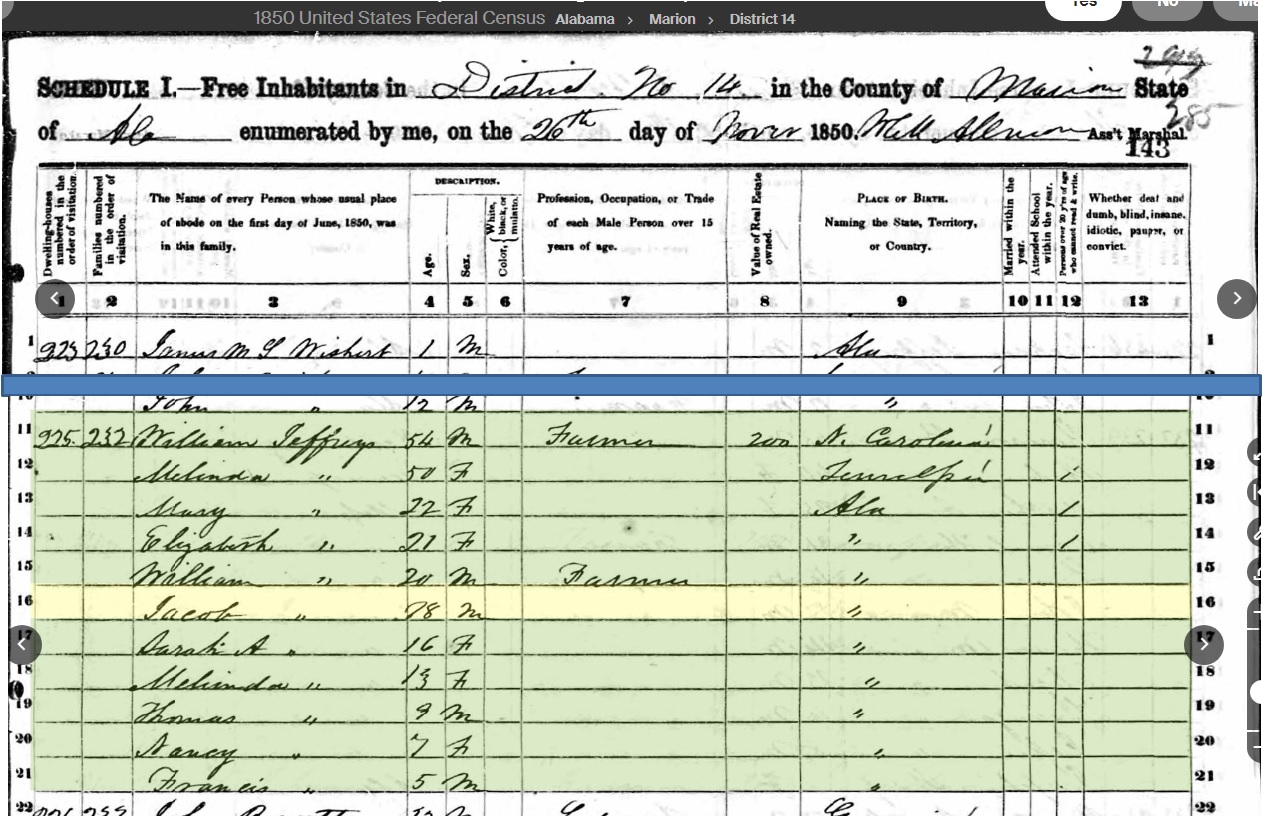 Yes No Ma
1850 United States Federal Census Alabama > Marion > District 14
293
SCHEDULE I.—Free Inhabitants in District No 14 in the County of Marion State
285
of Ala enumerated by me, on the 26th day of Novr 1850. Ass't Marshal.
143
Dwelling-houses numbered in the order of visitation.
Families numbered in the order of visitation.
The Name of every Person whose usual place of abode on the first day of June, 1850, was in this family.
DESCRIPTION.
Age.
Sex.
Color, { White, black, or mulatto.
Profession, Occupation, or Trade of each Male Person over 15 years of age.
Value of Real Estate owned.
PLACE OF BIRTH. Naming the State, Territory, or Country.
Married within the year.
Attended School within the year.
Persons over 20 y'rs of age who cannot read & write.
Whether deaf and dumb, blind, insane, idiotic, pauper, or convict.
1 2 3 4 5 6 7 8 9 10 11 12 13
1 923 230 James M S Wishert 1 M Ala 1
John " 12 M "
11 925 232 William Jeffreys 54 M Farmer 200 N. Carolina 11
12 Melinda " 50 F Tennessee 1 12
13 Mary " 22 F Ala 1 13
14 Elizabeth " 21 F " 1 14
15 William " 20 M Farmer " 15
16 Jacob " 18 M " 16
17 Sarah A " 16 F " 17
18 Melinda " 13 F " 18
19 Thomas " 9 M " 19
20 Nancy " 7 F " 20
21 Francis " 5 M " 21
22 22